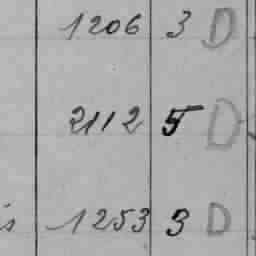 1206 3 D
2112 5 D
s 1253 3 D